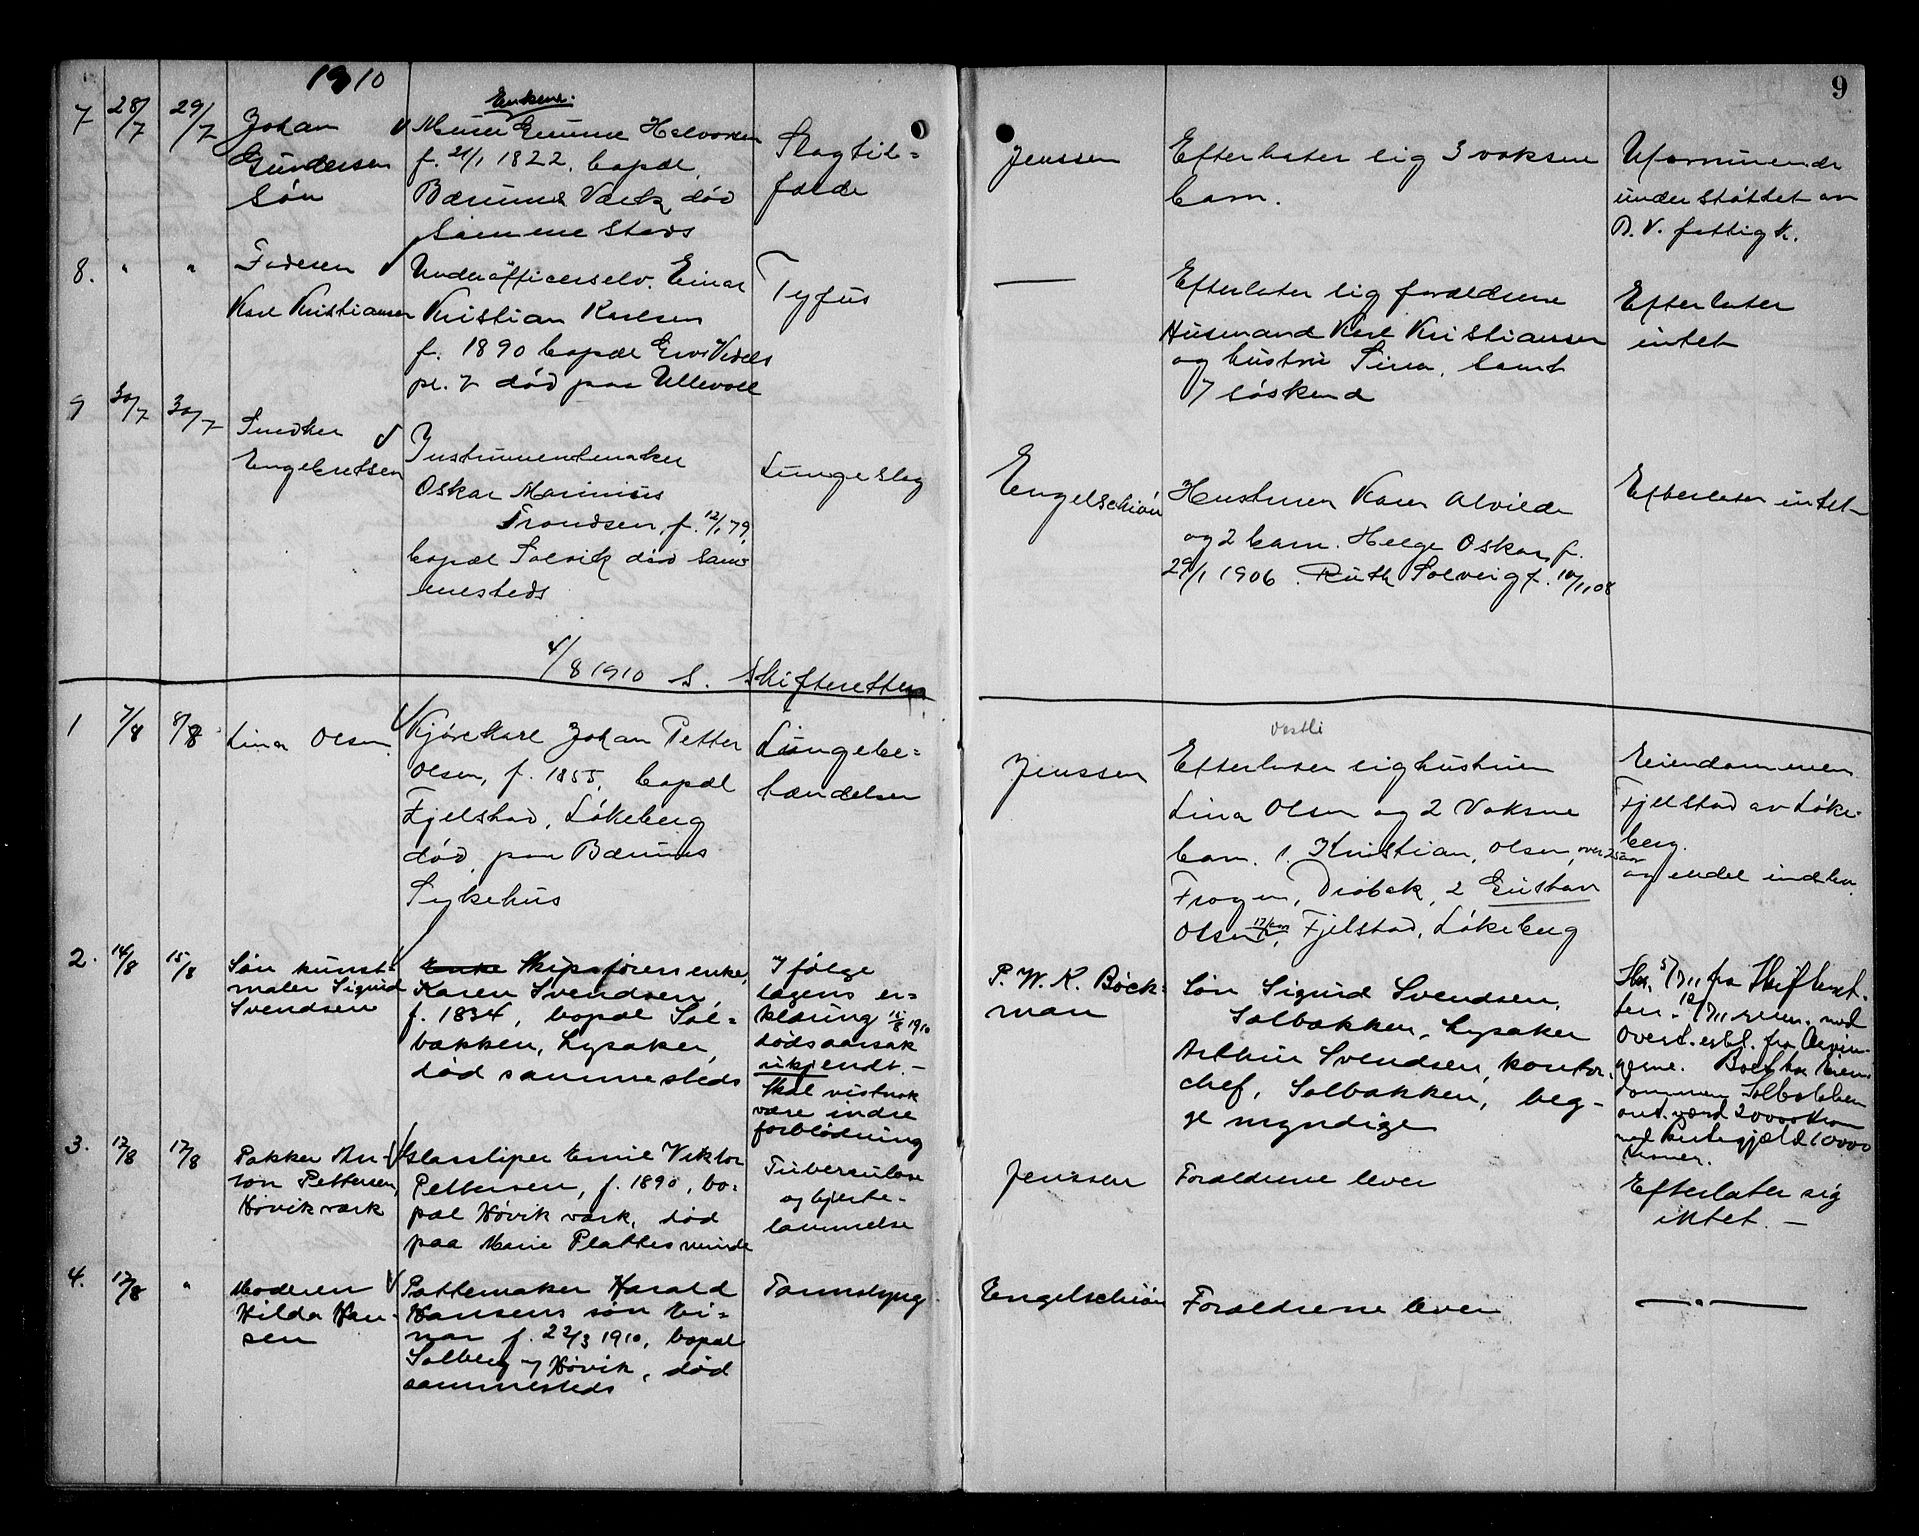 1910
9
7 28/7 29/7 Johan
Gundersen
Søn
Enkene.
Gunne Halvorsen
f. 21/1 1822, bopæl
Bærums Værk, død
sammesteds
Slagtil=
fælde
Jenssen
Efterlater sig 3 voksne
barn.
Uformuende
understøttet av
B. V. fattigk.
8. " " Faderen
Karl Kristiansen
Underofficerselv. Einar
Kristian Karlsen
f. 1890 bopæl
pl. 7 død paa Ullevoll
Tyfus
—
Efterlater sig forældrene
Husmand Karl Kristiansen
og hustru Sina, samt
7 søskend
Efterlater
intet
9 30/7 30/7 Snedker
Engebretsen
Instrumentmaker
Oskar Marinius
Trondsen, f. 12/1 79,
bopæl Solvik død sam
mesteds
Lungeslag
Engelschiøn
Hustruen Karen Alvilde
og 2 barn. Helge Oskar, f.
29/1 1906. Ruth Solveig f. 10/11 08
Efterlater intet
4/8 1910 S. Skifteretten
1 7/8 8/8 Lina Olsen
Kjørekarl Johan Petter
Olsen, f. 1855, bopæl
Fjelstad, Løkeberg
død paa Bærums
Sykehus
Lungebe=
tændelse
Jenssen
vestli
Efterlater sig hustruen
Lina Olsen og 2 voksne
barn. 1. Kristian Olsen, over 25 aar
Frogn, Drøbak, 2 Gustav
Olsen, Fjelstad, Løkeberg
Eiendommen
Fjelstad av Løke-
berg.
og endel indbo.
2. 14/8 15/8 Søn kunst-
maler Sigurd
Svendsen
Enke Skipsførerenke
Karen Svendsen,
f. 1834, bopæl Sol=
bakken, Lysaker,
død sammesteds
Ifølge
lægens er=
klæring 15/8 1910
dødsaarsak
ukjendt. -
Skal vistnok
være indre
forblødning
P. W. K. Bøck=
man
Søn Sigurd Svendsen,
Solbakken, Lysaker
Arthur Svendsen, kontor-
chef, Solbakken, beg-
ge myndige
5/7 11 fra Skifteret-
ten. 12/7 11 med
fra Arvin-
gerne. Boet har Eien
dommen Solbakken
ant. værd 20000 Kron
med Panteg jæld 10000
Kroner.
3. 17/8 17/8 Pakker An-
ton Pettersen,
Høvik værk
Glassliper Emil Viktor
Pettersen, f. 1890, bo-
pæl Høvik værk, død
paa Marie Plattes minde
Tuberculose
og hjerte-
lammelse
Jenssen
Forældrene lever
Efterlater sig
intet. -
4. 17/8 " Moderen
Hilda Han-
sen
Pottemaker Harald
Hansens søn Ei=
nar f. 22/3 1910, bopæl
Solberg, Høvik, død
sammesteds
Tarmslyng
Engelschiøn
Forældrene lever
— " —